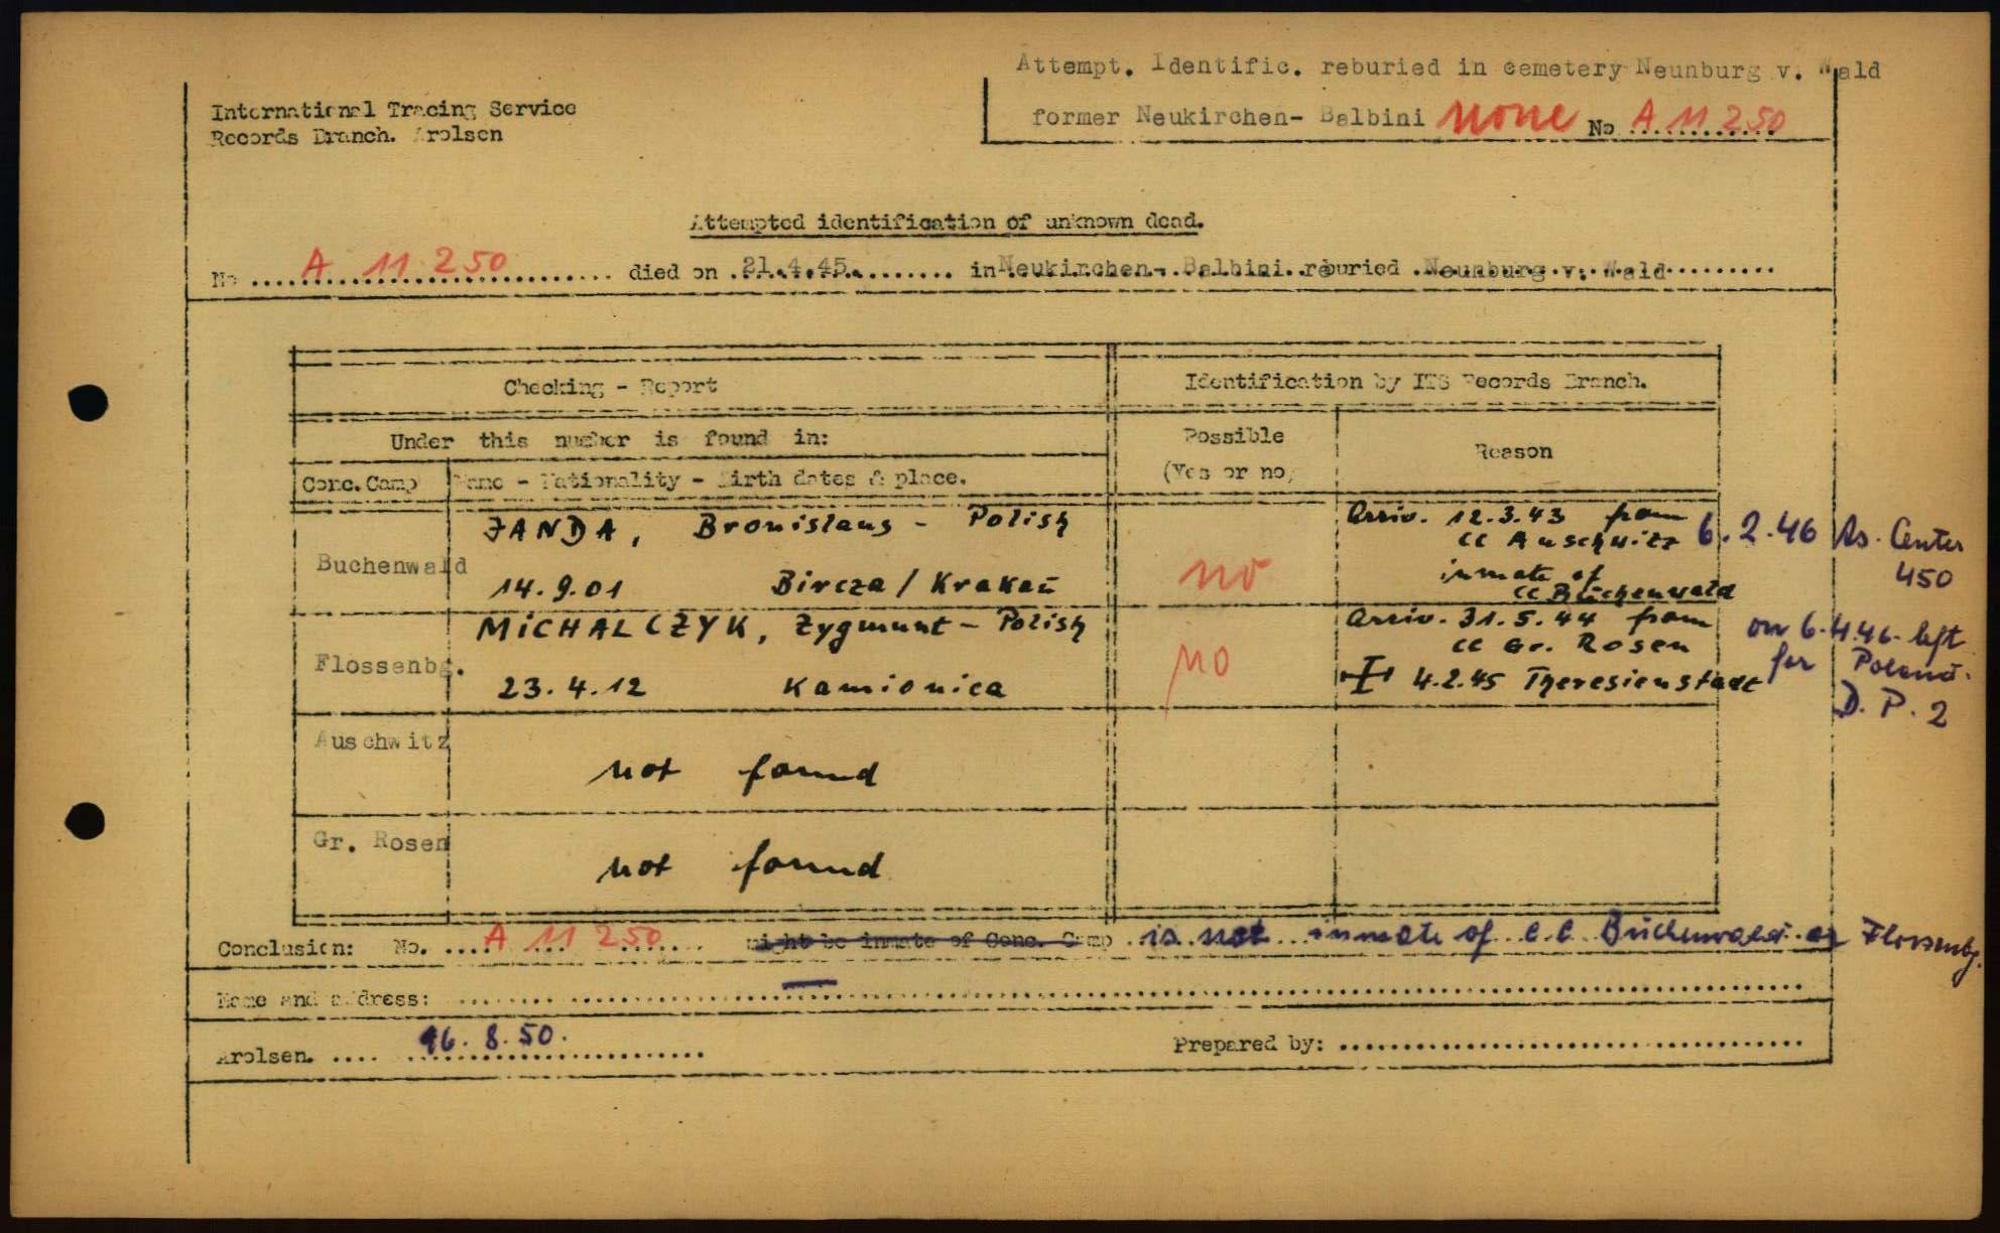 Attempt. Identific. reburied in cemetery Neunburg v. Wald
former Neukirchen- Balbini none No A 11 250
International Tracing Service
Records Branch. Arolsen
Attempted identification of unknown dead.
No A 11 250 died on 21.4.45. in Neukirchen- Balbini. reburied Neunburg v. Wald
Checking - Report
Identification by ITS Records Branch.
Under this number is found in:
Possible
(Yes or no)
Reason
Conc. Camp
Name - Nationality - Birth dates & place.
Buchenwald
JANDA, Bronislaus - Polish
14.9.01 Bircza / Krakau
no
Arriv. 12.3.43 from
CC Auschwitz
inmate of
CC Buchenwald
6.2.46 As. Center
450
Flossenbg.
MICHALCZYK, Zygmunt - Polish
23.4.12 Kamionica
no
Arriv. 31.5.44 from
CC Gr. Rosen
4.2.45 Theresienstadt
on 6.4.46 left
for Poland.
D.P. 2
Auschwitz
not found
Gr. Rosen
not found
Conclusion: No. A 11 250 might be inmate of Conc. Camp is not inmate of C.C. Buchenwald or Flossenbg.
Name and address: —
Arolsen. 16.8.50.
Prepared by: